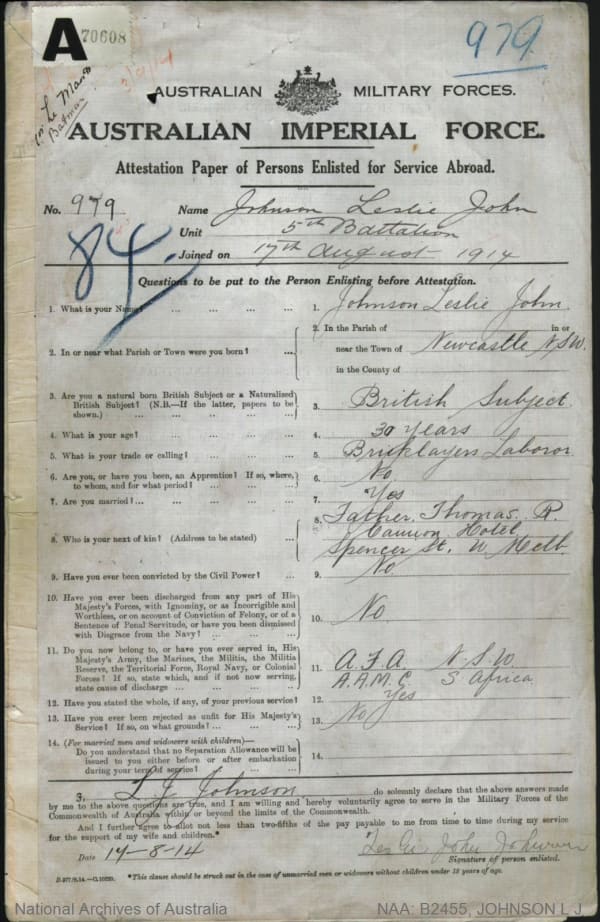 A 70608
979
3/9/14
Batman
AUSTRALIAN MILITARY FORCES.
AUSTRALIAN IMPERIAL FORCE.
Attestation Paper of Persons Enlisted for Service Abroad.
No. 979 Name Johnson Leslie John
Unit 5th Battalion
Joined on 17th August 1914
84.
Questions to be put to the Person Enlisting before Attestation.
1. What is your Name? ... ... ... ... 1. Johnson Leslie John
2. In or near what Parish or Town were you born? ... 2. In the Parish of in or
near the Town of Newcastle N.S.W.
in the County of
3. Are you a natural born British Subject or a Naturalized
British Subject? (N.B.—If the latter, papers to be
shown.) ... ... ... ... 3. British Subject.
4. What is your age? ... ... ... ... 4. 30 years
5. What is your trade or calling? ... ... ... 5. Bricklayers Laboror
6. Are you, or have you been, an Apprentice? If so, where,
to whom, and for what period? ... ... ... 6. No
7. Are you married? ... ... ... ... 7. Yes
8. Who is your next of kin? (Address to be stated) ... 8. Father. Thomas. R.
Hotel
Spencer St. W Melb
9. Have you ever been convicted by the Civil Power? ... 9. No
10. Have you ever been discharged from any part of His
Majesty's Forces, with Ignominy, or as Incorrigible and
Worthless, or on account of Conviction of Felony, or of a
Sentence of Penal Servitude, or have you been dismissed
with Disgrace from the Navy? ... ... ... 10. No
11. Do you now belong to, or have you ever served in, His
Majesty's Army, the Marines, the Militia, the Militia
Reserve, the Territorial Force, Royal Navy, or Colonial
Forces? If so, state which, and if not now serving,
state cause of discharge ... ... ... 11. A.F.A. N.S.W
A.A.M.C. S Africa
12. Have you stated the whole, if any, of your previous service? 12. Yes
13. Have you ever been rejected as unfit for His Majesty's
Service? If so, on what grounds? ... ... 13. No
14. (For married men and widowers with children)—
Do you understand that no Separation Allowance will be
issued to you either before or after embarkation
during your term of service? ... ... 14.
I, L J Johnson do solemnly declare that the above answers made
by me to the above questions are true, and I am willing and hereby voluntarily agree to serve in the Military Forces of the
Commonwealth of Australia within or beyond the limits of the Commonwealth.
And I further agree to allot not less than two-fifths of the pay payable to me from time to time during my service
for the support of my wife and children.*
Date 17-8-14 Leslie John Johnson
Signature of person enlisted.
*This clause should be struck out in the case of unmarried men or widowers without children under 18 years of age.
National Archives of Australia NAA: B2455, JOHNSON L J